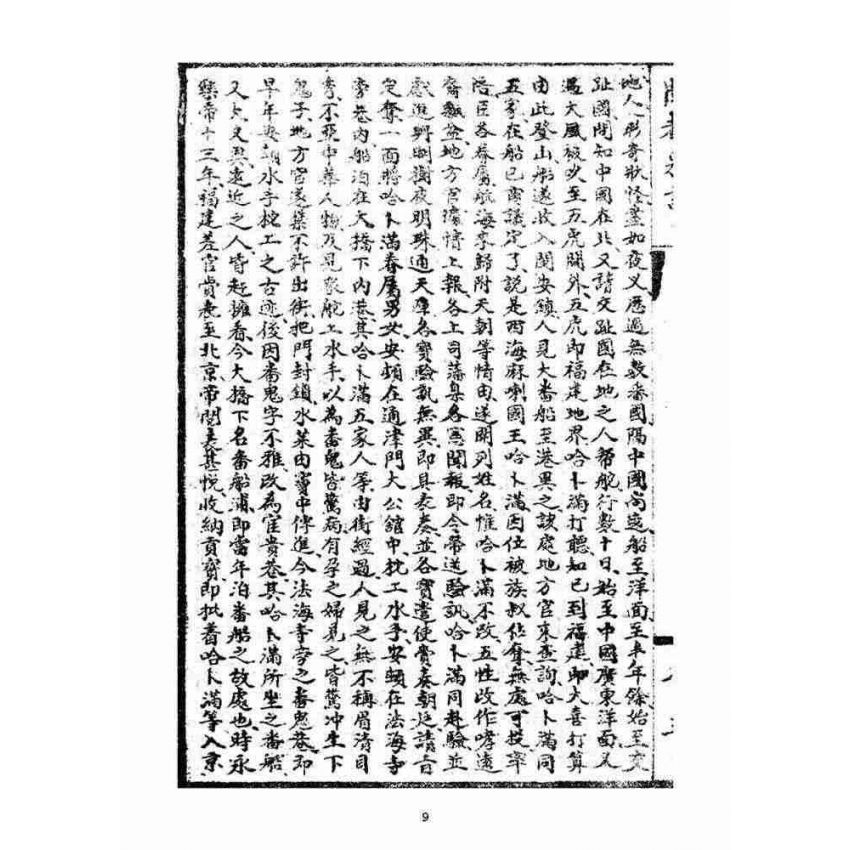 地人人形奇狀怪盡如夜叉歷過無數番國隔中國尚遠船至洋面至半年餘始至交
趾國問知中國在北又請交趾國在地之人帮舵行数十日始至中國廣東洋面又
遇大風被吹至五虎關外五虎即福建地界哈卜滿打聽知已到福建即大喜打算
由此登山船遂收入閩安鎮人見大番船至港異之該處地方官來查詢哈卜滿同
五家在船已商議定了說是西海麻喇國王哈卜滿因位被族叔佔奪無處可投率
陪臣各眷屬航海來歸附天朝等情由遂開列姓名惟哈卜滿不改五性改作孝遠
地方官據情上報各上司藩臬各憲聞報即令帶送驗訊哈卜滿同赴驗並
獻進珊瑚樹夜明珠通天犀各寶驗訊無異即具表奏並各寶遣使賫奏朝廷請旨
定奪一面將哈卜滿眷屬男女安頓在通津門大公舘中枕工水手安頓在法海寺
旁巷內船泊在大橋下內港其哈卜滿五家人等由街經過人見之無不稱眉清目
秀不亞中華人物及見眾舵工水手以為番鬼皆驚病有孕之婦見之皆驚冲生下
鬼子地方官遂集不許出街把門封鎖水菜由竇中傳進今法海寺旁之番鬼巷即
早年安頓水手枕工之古迹後因番鬼字不雅改為宦貴巷其哈卜滿所坐之番船
又大又異遠近之人皆赶擁看今大橋下名番船浦即當年泊番船之故處也時永
樂帝十三年福建差官賫表至北京帝閱表甚悅收納貢寶即批着哈卜滿等入京
9